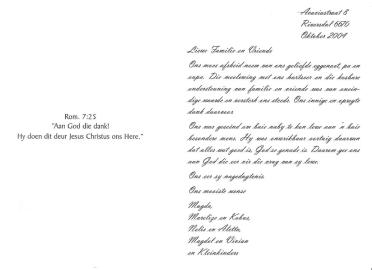 Rom. 7:25
"Aan God die dank!
Hy doen dit deur Jesus Christus ons Here."
Acaciastraat 8
Riversdal 6670
Oktober 2004
Liewe Familie en Vriende
Ons moes afskeid neem van ons geliefde eggenoot, pa en
oupa. Die meelewing met ons hartseer en die kosbare
ondersteuning van familie en vriende was van onein-
dige waarde en versterk ons steeds. Ons innige en opregte
dank daarvoor.
Ons was geseënd om baie naby te kan lewe aan 'n baie
besondere mens. Hy was onwrikbaar oortuig daarvan
dat alles wat goed is, God se genade is. Daarom gee ons
aan God die eer vir die vrug van sy lewe.
Ons eer sy nagedagtenis.
Ons mooiste wense
Magda,
Marelize en Kobus,
Nelis en Aletta,
Magdel en Vivian
en Kleinkinders